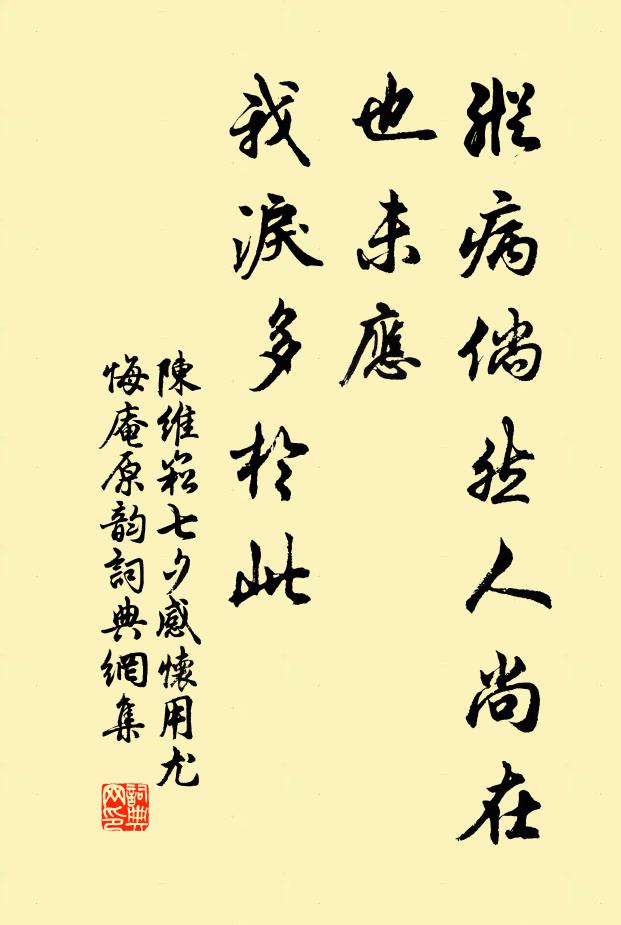 縱病倘然人尚在
也未應
我淚多於此
陳維崧七夕感懷用尤
悔庵原韵詞典網集
詞典網印